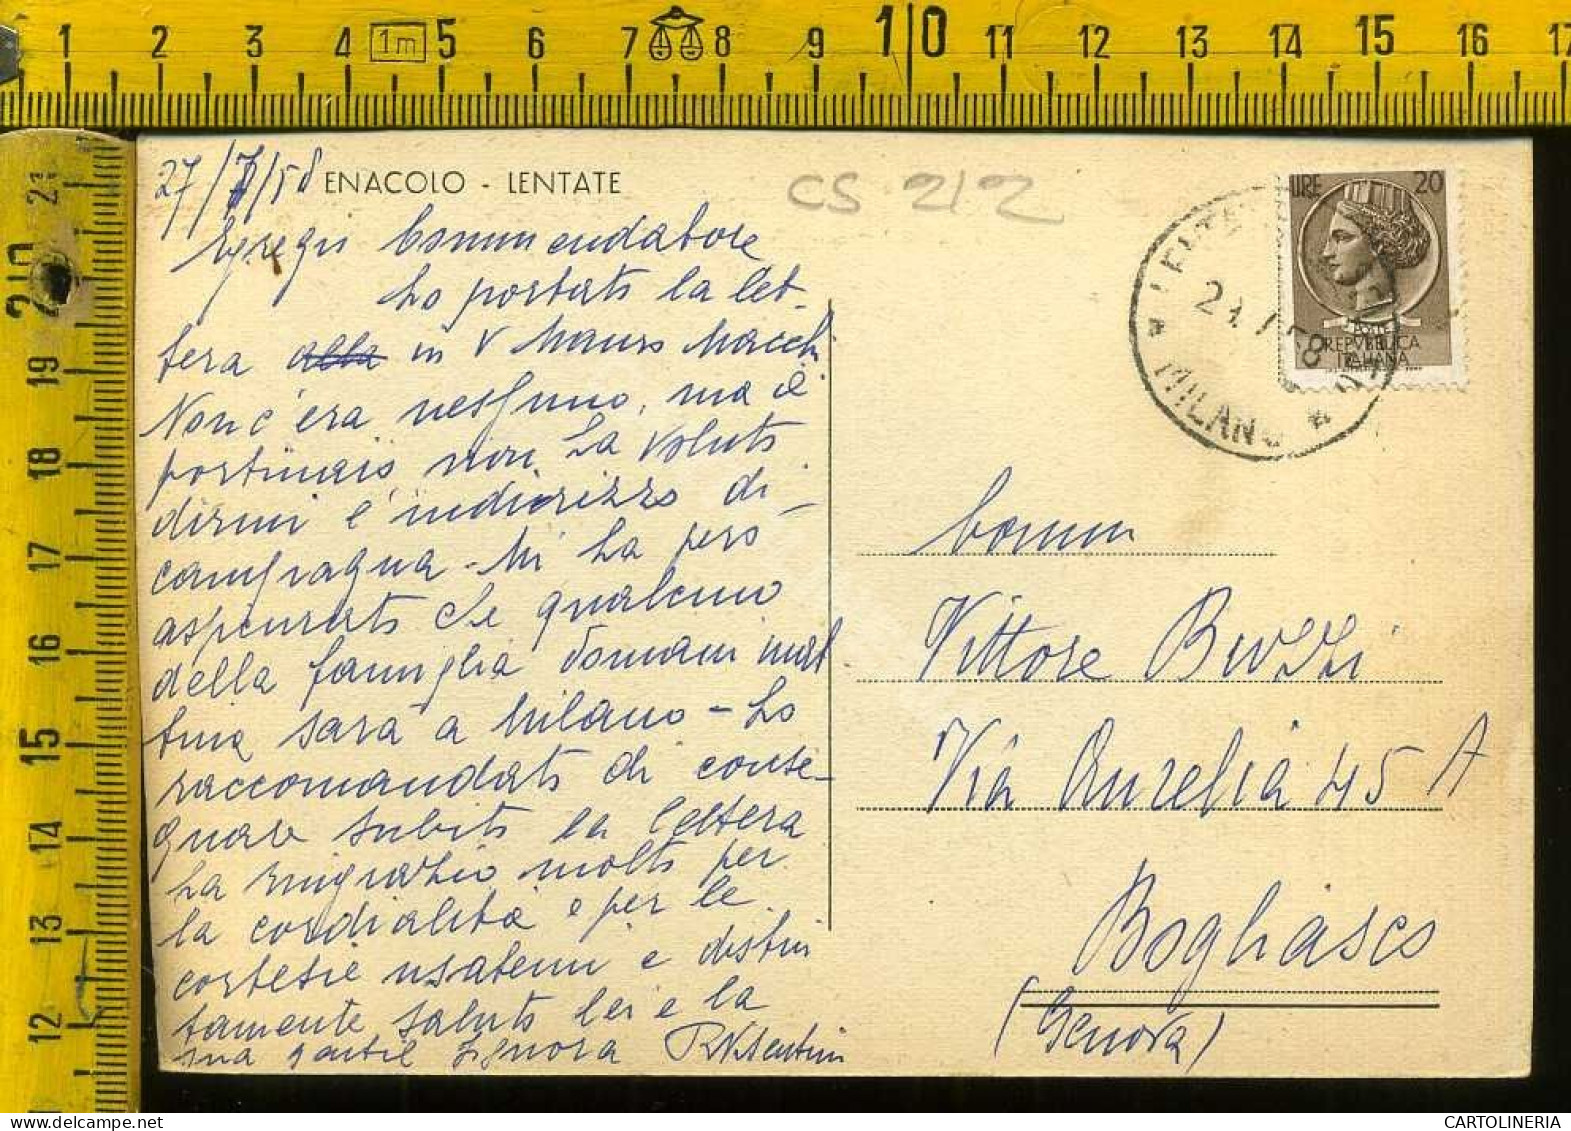 1 2 3 4 1m 5 6 7 8 9 10 11 12 13 14 15 16 17
21
20
19
18
17
16
15
14
13
12
27/7/58 ENACOLO - LENTATE
CS 212
Egregio Commendatore
ho portato la let-
tera alla in V Mauro Macchi
Non c'era nessuno, ma il
portinaio non ha voluto
dirmi l'indirizzo di
campagna - Mi ha però
assicurato che qualcuno
della famiglia domani mat
tina sarà a Milano - Ho
raccomandato di conse-
gnare subito la lettera
La ringrazio molto per
la cordialità e per le
cortesie usatemi e distin
tamente saluto lei e la
sua gentil Signora
LIRE 20
POSTE
REPVBBLICA
ITALIANA
MILANO
Comm
Vittore Buzzi
Via Aurelia 45 A
Bogliasco
(Genova)
CARTOLINERIA